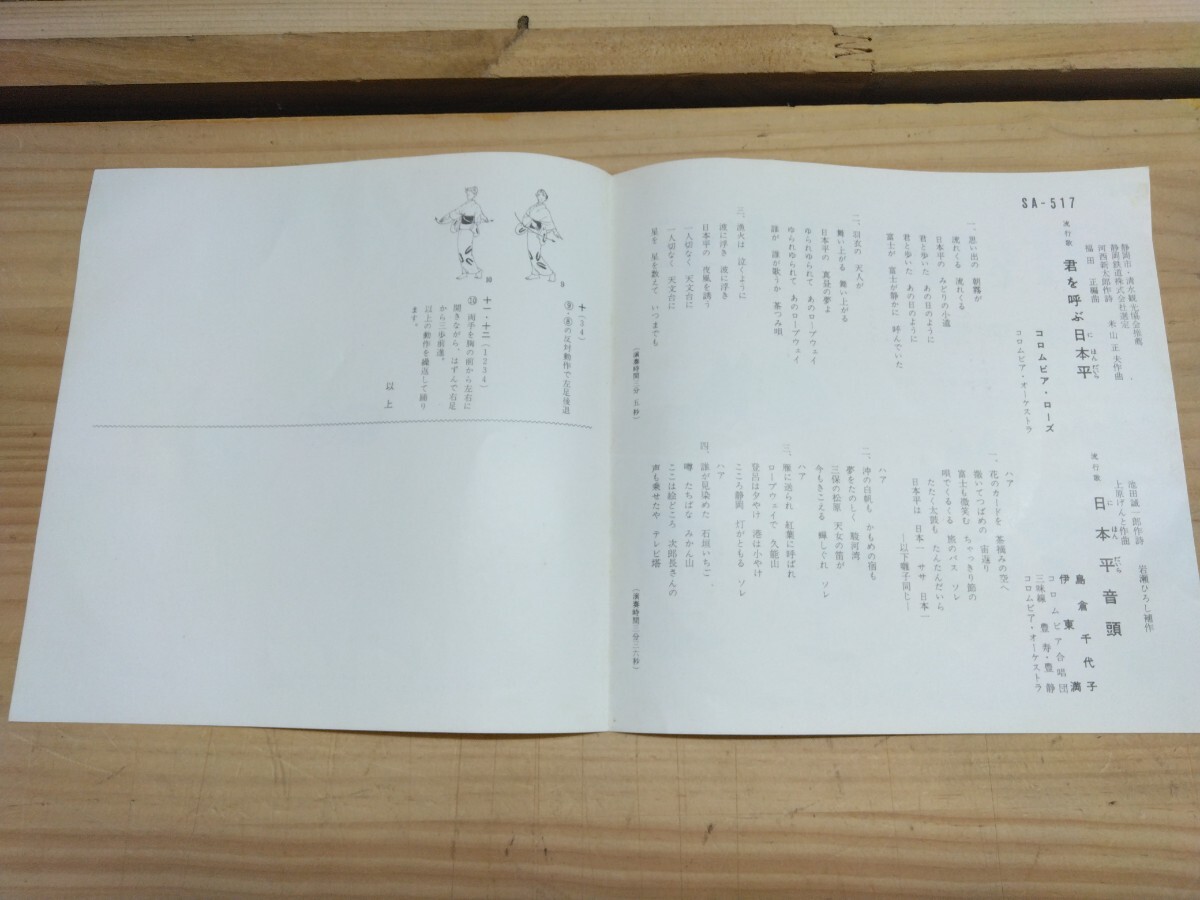 SA-517
静岡市・清水観光協会推薦
静岡鉄道株式会社選定
河西新太郎作詩 米山正夫作曲
福田 正編曲
流行歌 君を呼ぶ日本平
にほんだいら
コロムビア・ローズ
コロムビア・オーケストラ
一、思い出の 朝霧が
流れくる 流れくる
日本平の みどりの小道
君と歩いた あの日のように
君と歩いた あの日のように
富士が 富士が静かに 呼んでいた
二、羽衣の 天人が
舞い上がる 舞い上がる
日本平の 真昼の夢よ
ゆられゆられて あのロープウェイ
ゆられゆられて あのロープウェイ
誰が 誰が歌うか 茶つみ唄
三、漁火は 泣くように
波に浮き 波に浮き
日本平の 夜風を誘う
一人切なく 天文台に
一人切なく 天文台に
星を 星を数えて いつまでも
(演奏時間三分五秒)
池田誠一郎作詩
上原げんと作曲
岩瀬ひろし補作
流行歌 日本平音頭
にほんだいら
島倉千代子
伊東満
コロムビア合唱団
三味線 豊寿・豊静
コロムビア・オーケストラ
一、ハア
花のカードを 茶摘みの空へ
撒いてつばめの 宙返り
富士も微笑む ちゃっきり節の
唄でくるくる 旅のバス ソレ
たたく太鼓も たんたんだいら
日本平は 日本一 ササ 日本一
―以下囃子同じ―
二、ハア
沖の白帆も かもめの宿も
夢をたのしく 駿河湾
三保の松原 天女の笛が
今もきこえる 蝉しぐれ ソレ
三、ハア
雁に送られ 紅葉に呼ばれ
ロープウェイで 久能山
登呂は夕やけ 港は小やけ
こころ静岡 灯がともる ソレ
四、ハア
誰が見染めた 石垣いちご
噂 たちばな みかん山
ここは絵どころ 次郎長さんの
声も乗せたや テレビ塔
(演奏時間三分三六秒)
9
10
十(34)
⑨・⑧の反対動作で左足後退
十一・十二(1234)
⑩ 両手を胸の前から左右に
開きながら、はずんで右足
から三歩前進。
以上の動作を繰返して踊り
ます。
以上